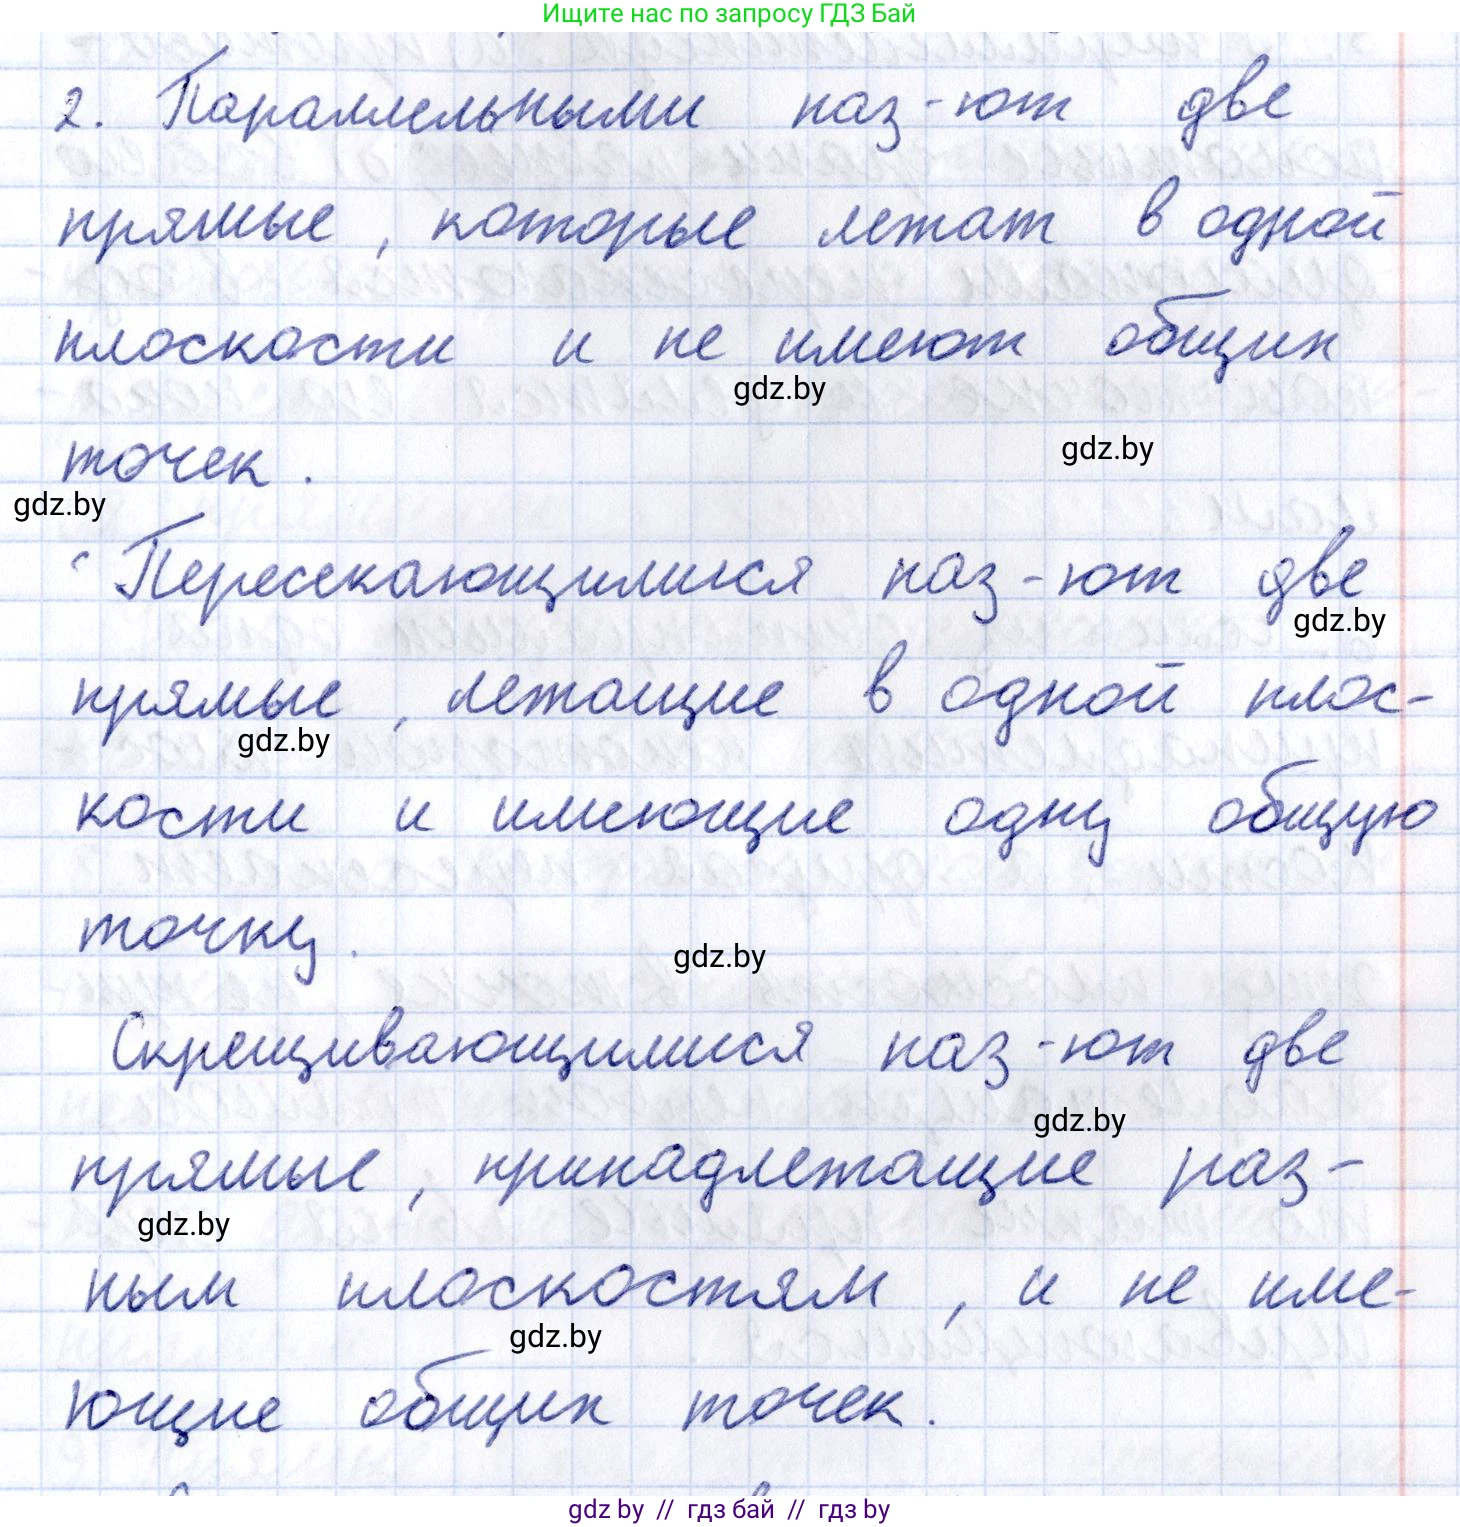 Ищите нас по запросу ГДЗ Бай
2. Параллельными наз-ют две
прямые, которые лежат в одной
плоскости и не имеют общих
gdz.by
gdz.by
точек.
gdz.by
Пересекающимися наз-ют две
gdz.by
прямые, лежащие в одной плос-
gdz.by
кости и имеющие одну общую
точку.
gdz.by
Скрещивающимися наз-ют две
gdz.by
прямые, принадлежащие раз-
gdz.by
ным плоскостям, и не име-
gdz.by
ющие общих точек.
gdz by // гдз бай // гдз by